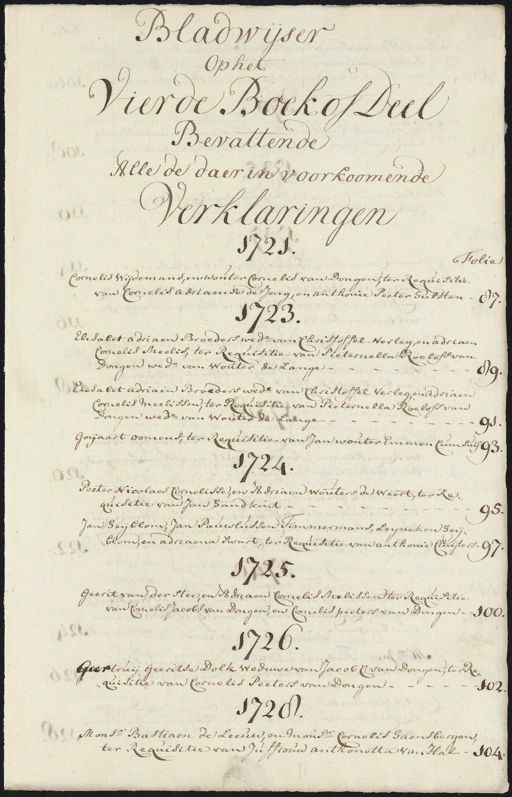 Bladwijser
Op het
Vierde Boek of Deel
Bevattende
Alle de daer in voorkoomende
Verklaringen
1721.
Folio
Cornelis Wijdemans, en Wouter Cornelis van Dongen, ter Requisitie
van Cornelis Adriaen de Jong, en Anthonie Peeter Hulsten - 87.
1723.
Elisabet Adriaen Broeders wede van Christoffel Verleg, en Adriaen
Cornelis Meelis, ter Requisitie van Pieternella Roelofs van
Dongen wede van Wouter de Lange - 89.
Elisabet Adriaen Broeders wede van Christoffel Verleg, en Adriaen
Cornelis Meelissen, ter Requisitie van Pieternella Roelofs van
Dongen wede van Wouter de Lange - 91.
Gorjaart Oomens, ter Requisitie van Jan Wouter Emmen 93.
1724.
Peeter Nicolaes Cornelisse, en Adriaen Wouters de Weert, ter Re-
quisitie van Jan Zandtent - 95.
Jan Seijblom, Jan Pauwelussen Timmermans, Leyneken Seij-
blom, en Adriaena Swart, ter Requisitie van Anthonie Cluijters. 97.
1725.
Geerit van der Slee, en Adriaen Cornelis Melissen ter Requisitie
van Cornelis Jacobs van Dongen, en Cornelis Peeters van Dongen - 100.
1726.
Geertruij Geeritse Dolk Weduwe van Jacob C. van Dongen, ter Re-
quisitie van Cornelis Peeters van Dongen - 102.
1728.
Monsr. Bastiaen de Leeuw, en Monsr. Cornelis Gaensbergen,
ter Requisitie van Juffrouw Anthonetta van Hal - 104.